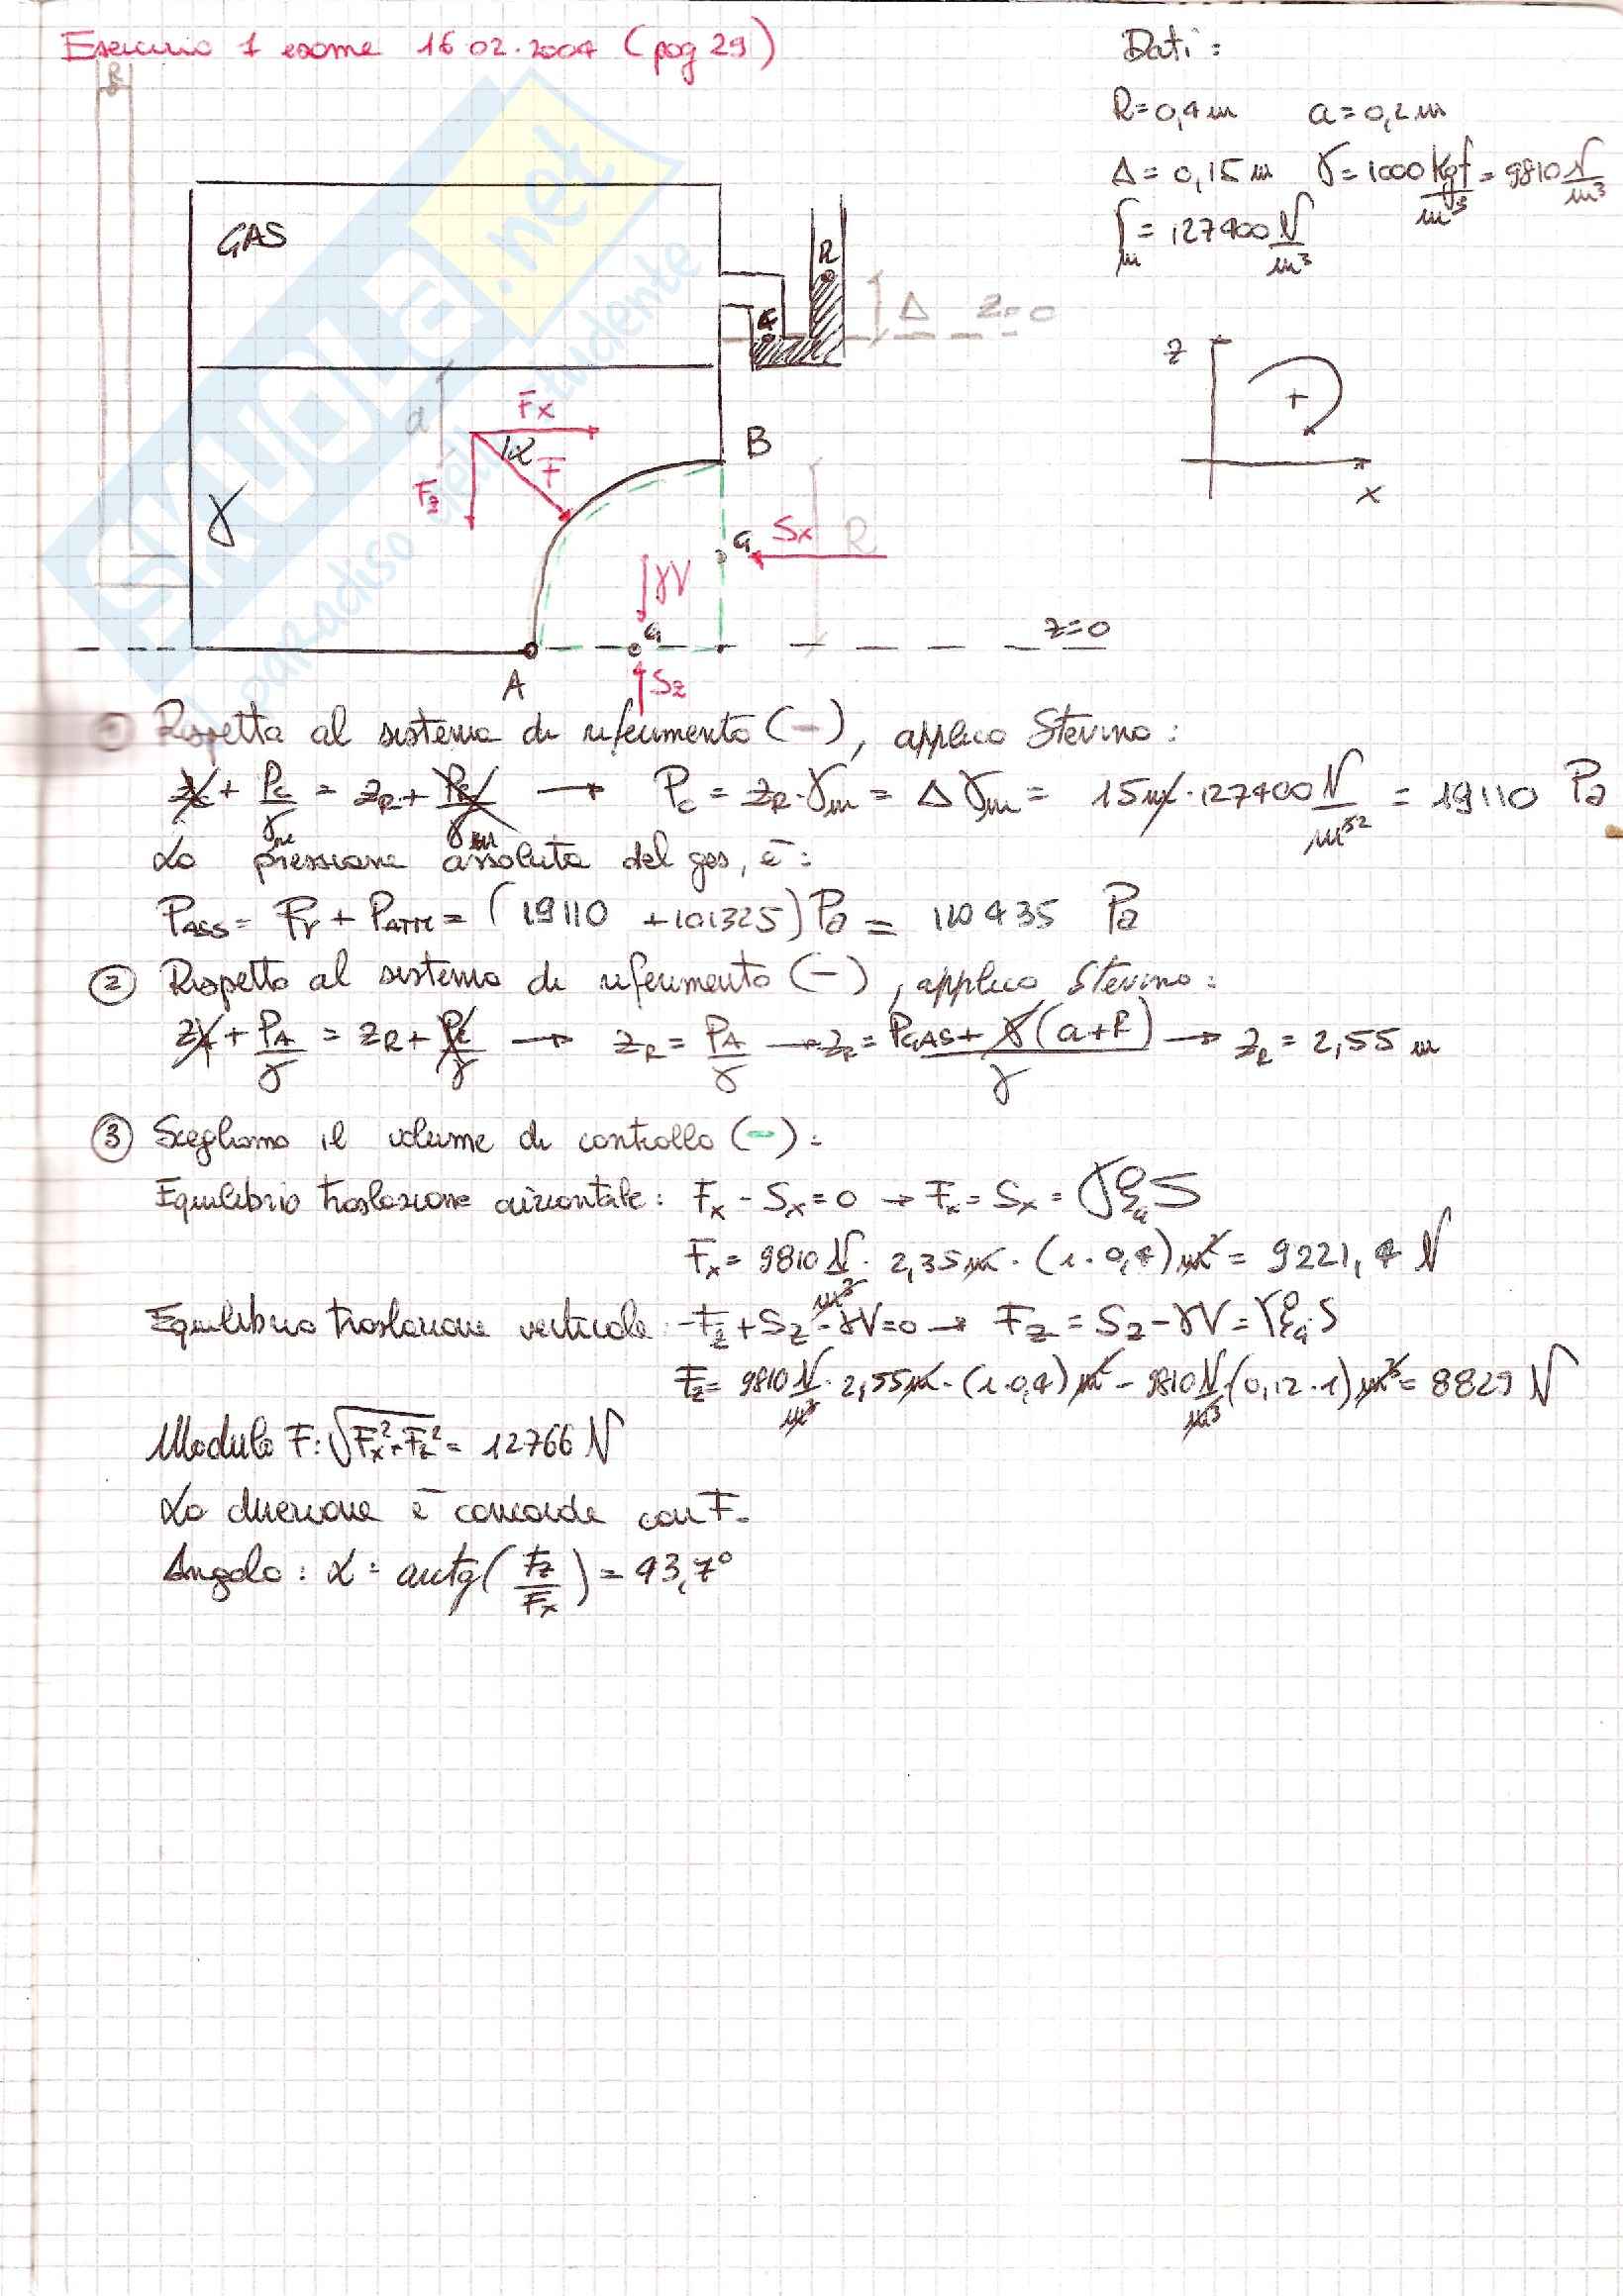 Esercizio 1 esame 16 02.2004 (pag 29)
Dati:
R=0,4m a=0,2m
Δ=0,15m γ=1000 Kgf/m³ = 9810 N/m³
γm = 127400 N/m³
R
GAS
R
C
Δ z=0
a
Fx
α F
Fz
B
γ
G Sx R
γV
z
+
x
G
z=0
A
Sz
① Rispetto al sistema di riferimento (-), applico Stevino:
zC + PC/γm = zR + PR/γm → PC = zR·γm = Δγm = 15m·127400 N/m³² = 19110 Pa
La pressione assoluta del gas, è:
PASS = Pr + PATM = (19110 + 101325) Pa = 120435 Pa
② Rispetto al sistema di riferimento (-), applico Stevino:
zA + PA/γ = zR + PR/γ → zR = PA/γ → zR = PGAS + γ(a+R)/γ → zR = 2,55 m
③ Scegliamo il volume di controllo (-):
Equilibrio traslazione orizzontale: Fx - Sx = 0 → Fx = Sx = γξGS
Fx = 9810 N/m³ · 2,35m · (1·0,4)m² = 9221,4 N
Equilibrio traslazione verticale: -Fz + Sz - γV = 0 → Fz = Sz - γV = γξG·S
Fz = 9810 N/m³ · 2,55m · (1·0,4)m² - 9810 N/m³ (0,12·1)m³ = 8829 N
Modulo F: √Fx²+Fz² = 12766 N
La direzione è concorde con F.
Angolo: α = arctg(Fz/Fx) = 43,7°
SKUOLA.net
paradiso dello studente